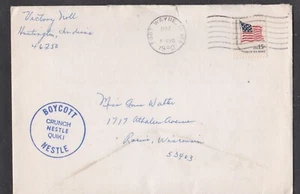 Victory Noll
Huntington, Indiana
46750
FORT WAYNE
1980
15c
BOYCOTT
CRUNCH
NESTLE
QUIK!
NESTLE
Miss Ann Walter
1717 Athalen Avenue
Racine, Wisconsin
53403